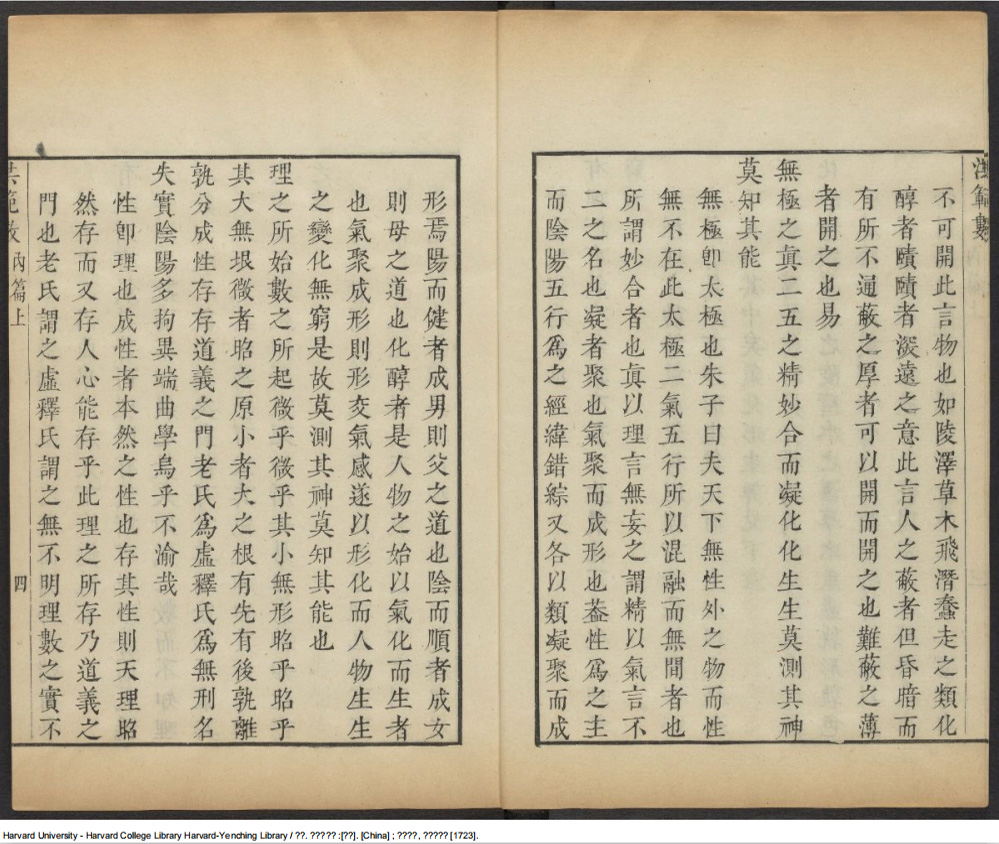 洪範數
不可開此言物也如陵澤草木飛潛蠢走之類化
醇者賾賾者深遠之意此言人之蔽者但昏暗而
有所不通蔽之厚者可以開而開之也難蔽之薄
者開之也易
無極之眞二五之精妙合而凝化化生生莫測其神
莫知其能
無極卽太極也朱子曰夫天下無性外之物而性
無不在此太極二氣五行所以混融而無間者也
所謂妙合者也眞以理言無妄之謂精以氣言不
二之名也凝者聚也氣聚而成形也葢性爲之主
而陰陽五行爲之經緯錯綜又各以類凝聚而成
形焉陽而健者成男則父之道也陰而順者成女
則母之道也化醇者是人物之始以氣化而生者
也氣聚成形則形交氣感遂以形化而人物生生
之變化無窮是故莫測其神莫知其能也
理之所始數之所起微乎微乎其小無形昭乎昭乎
其大無垠微者昭之原小者大之根有先有後孰離
孰分成性存存道義之門老氏爲虛釋氏爲無刑名
失實陰陽多拘異端曲學烏乎不渝哉
性卽理也成性者本然之性也存其性則天理昭
然存而又存人心能存乎此理之所存乃道義之
門也老氏謂之虛釋氏謂之無不明理數之實不
內篇上
四
Harvard University - Harvard College Library Harvard-Yenching Library / ??. ????? :[??]. [China] ; ????, ????? [1723].